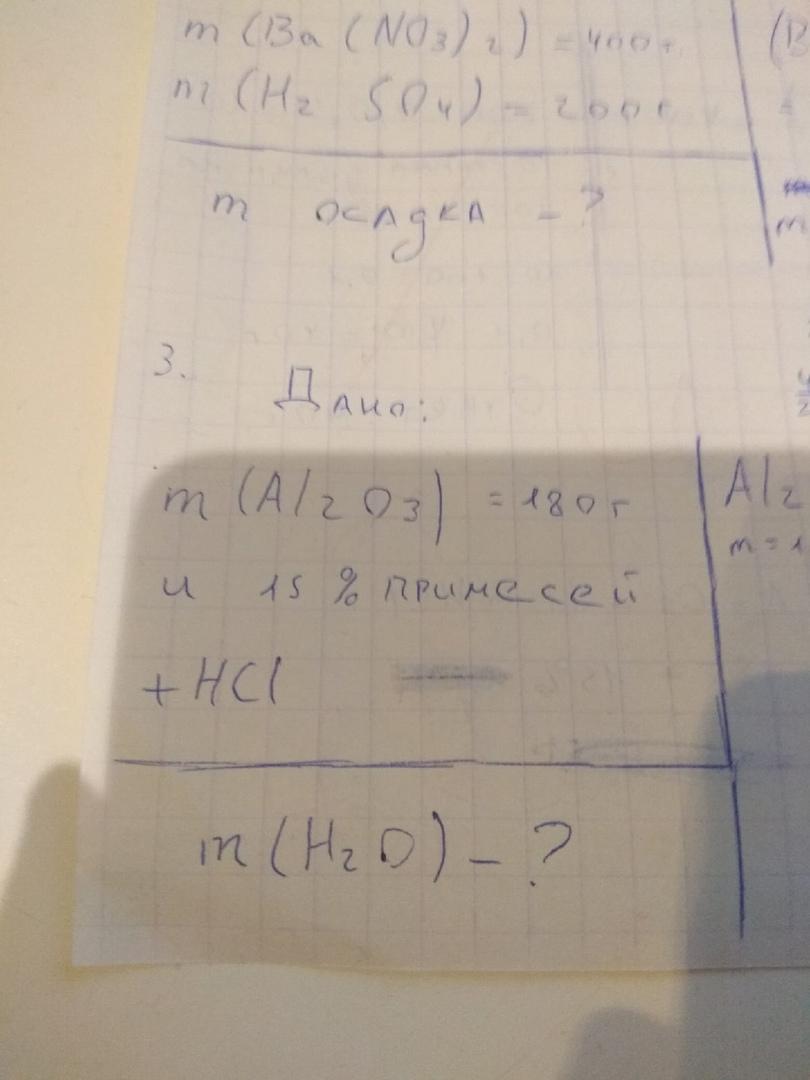 m (Ba (NO3)2) = 400г (B
m (H2 SO4) = 200г =
m осадка - ? m
3.
Дано:
m (Al2O3) = 180г Al2
и 15 % примесей m = 1
+ HCl
m (H2O) - ?